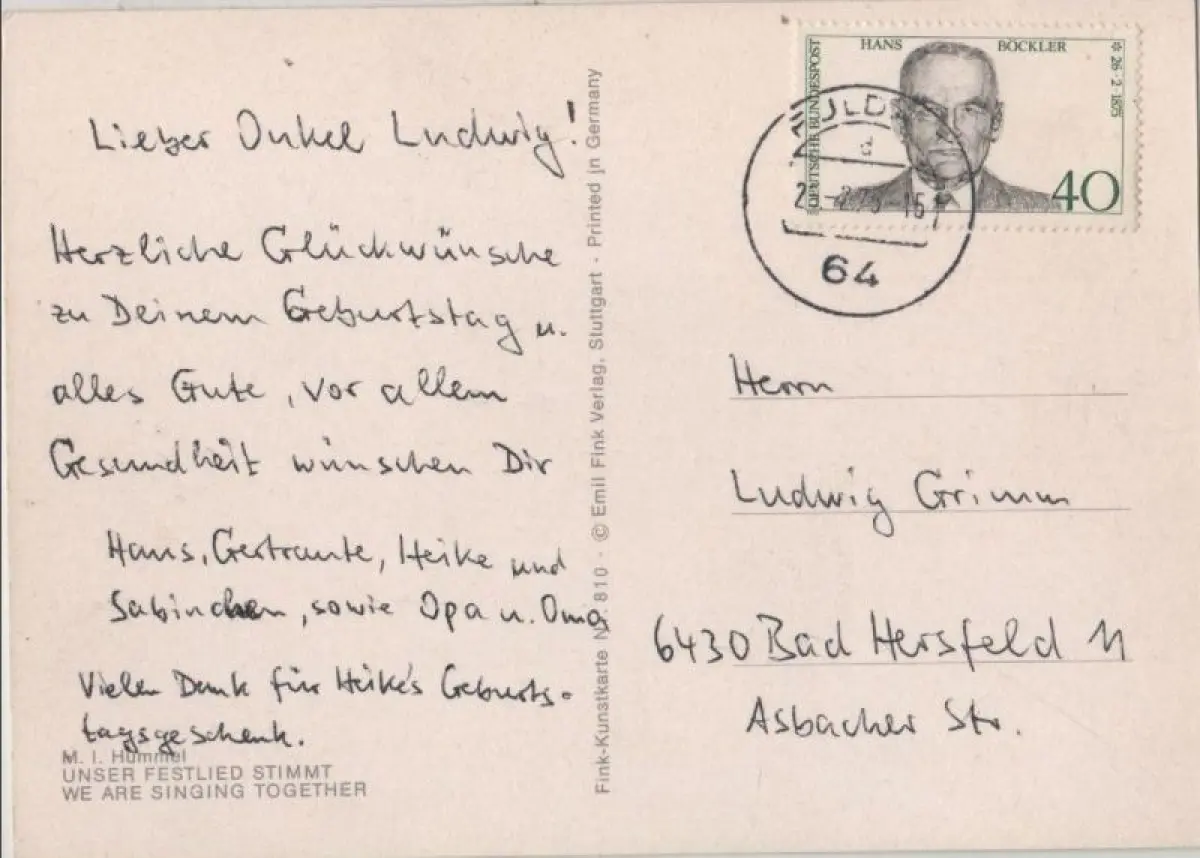 Lieber Onkel Ludwig!
Herzliche Glückwünsche
zu Deinem Geburtstag u.
alles Gute, vor allem
Gesundheit wünschen Dir
Hans, Gertraute, Heike und
Sabinchen, sowie Opa u. Oma
Vielen Dank für Heike's Geburts-
tagsgeschenk.
M. I. Hummel
UNSER FESTLIED STIMMT
WE ARE SINGING TOGETHER
Fink-Kunstkarte Nr. 810 · © Emil Fink Verlag, Stuttgart · Printed in Germany
HANS BÖCKLER
DEUTSCHE BUNDESPOST
* 26·2·1875
40
a
64
Herrn
Ludwig Grimm
6430 Bad Hersfeld 11
Asbacher Str.